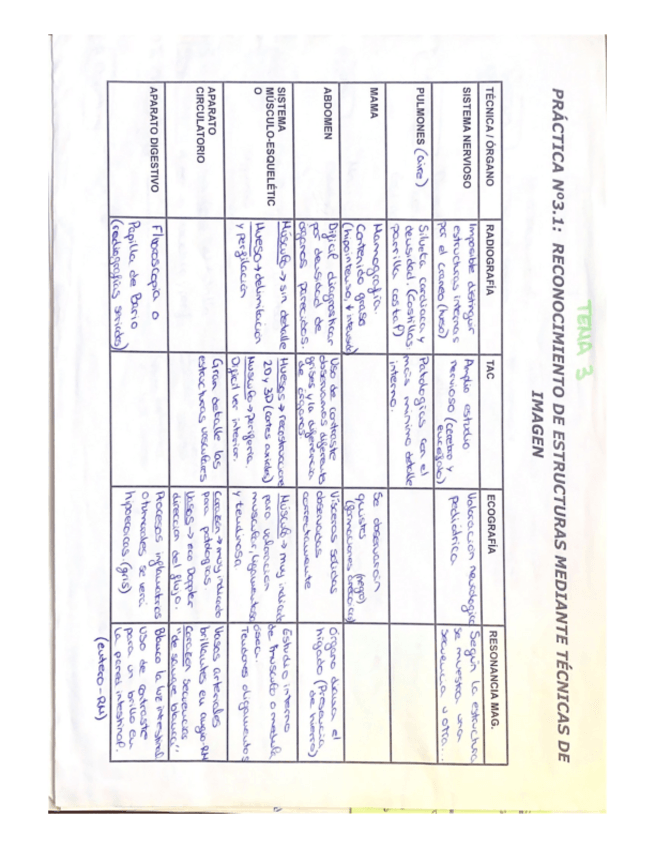 TEMA 3
PRÁCTICA Nº3.1: RECONOCIMIENTO DE ESTRUCTURAS MEDIANTE TÉCNICAS DE
IMAGEN
TÉCNICA / ÓRGANO
RADIOGRAFÍA
TAC
ECOGRAFÍA
RESONANCIA MAG.
SISTEMA NERVIOSO
Imposible distinguir
estructuras internas
por el craneo (hueso)
Amplio estudio
nervioso (cerebro y
encefalo)
Valoracion neurologica
pediatrica
Según la estructura
se muestra una
secuencia u otra...
PULMONES (aire)
Silueta cardiaca y
densidad. (Costillas
parrilla costal)
Patologias con el
más minimo detalle
interno.
MAMA
Mamografia.
Contenido graso
(hipointenso, + intensidad)
Se observarán
quistes (negro)
(formaciones anecoicas)
ABDOMEN
Dificil diagnosticar
por densidad de
organos parecidos.
Uso de contraste
observamos diferentes
grises y la diferencia
de órganos
Visceras solidas
observadas
correctamente
Organo diana el
higado (Presencia
de hierro)
SISTEMA
MÚSCULO-ESQUELÉTIC
O
Músculo → sin detalle
Hueso → delimitacion
y perfilacion
Huesos → reconstrucciones
2D y 3D (cortes axiales)
Musculo → periferia.
Dificil ver interior.
Músculo → muy indicado
para valoracion
muscular, ligamentosa
y tendinosa
Estudio interno
de musculo o medula
osea.
Tendones o ligamentos
APARATO
CIRCULATORIO
Gran detalle las
estructuras vasculares
Corazón → muy indicado
para patologias.
Vasos → eco Doppler
direccion del flujo.
Vasos arteriales
brillantes en angio-RM
Corazon secuencias
"de sangre blanca".
APARATO DIGESTIVO
Fluoroscopia o
Papilla de Bario
(radiografias seriadas)
Procesos inflamatorios
o tumorales se verá
hiperecoicas (gris)
Blanco la luz intestinal
uso de contraste
para un brillo en
la pared intestinal.
(entero-RM)